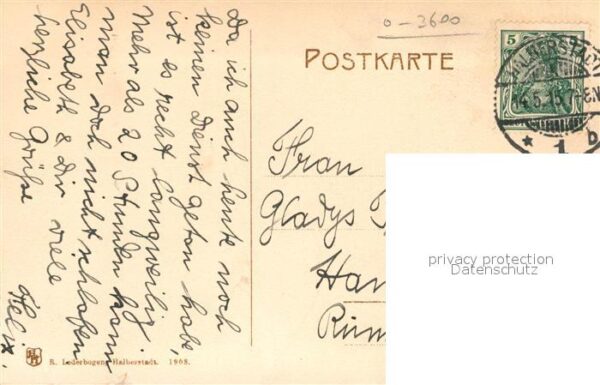 0-2600
POSTKARTE
5
14.5.15. 7-8N
* 1 b
Da ich auch heute noch
keinen Dienst getan habe,
ist es recht langweilig.
Mehr als 20 Stunden kann
man doch nicht schlafen.
Elisabeth & Dir viele
herzliche Grüße
Felix.
Frau
Gladys
Han
Rüm
privacy protection
Datenschutz
R. Lederbogen, Halberstadt. 1908.